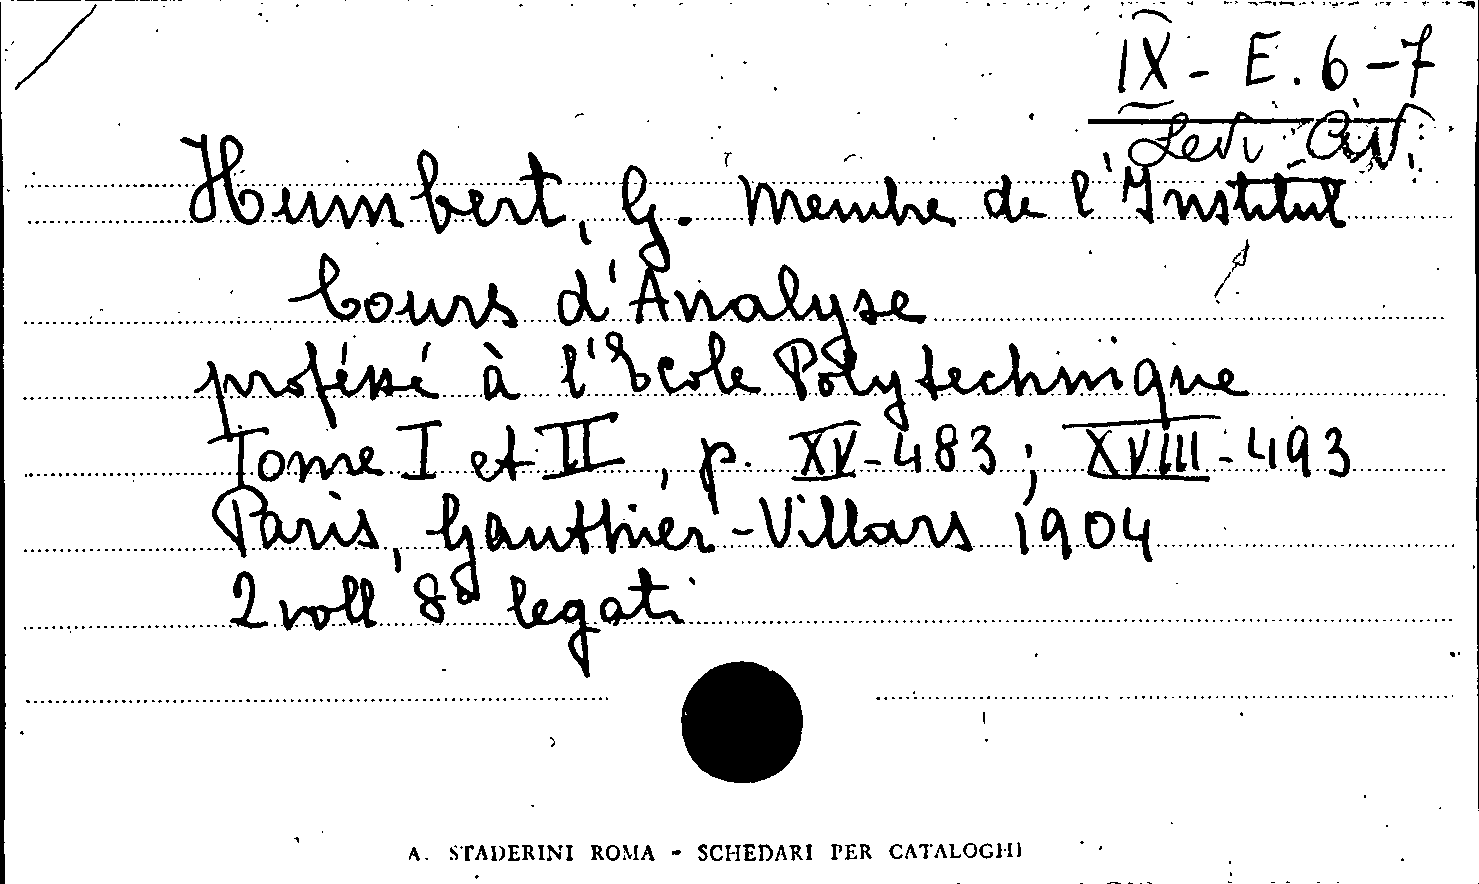 IX - E. 6-7
Levi Civ.
Humbert, G. Membre de l'Institut
Cours d'Analyse
proféssé à l'Ecole Polytechnique
Tome I et II, p. XV-483; XVIII-493
Paris, Gauthier-Villars 1904
2 voll 8° legati
A. STADERINI ROMA - SCHEDARI PER CATALOGHI